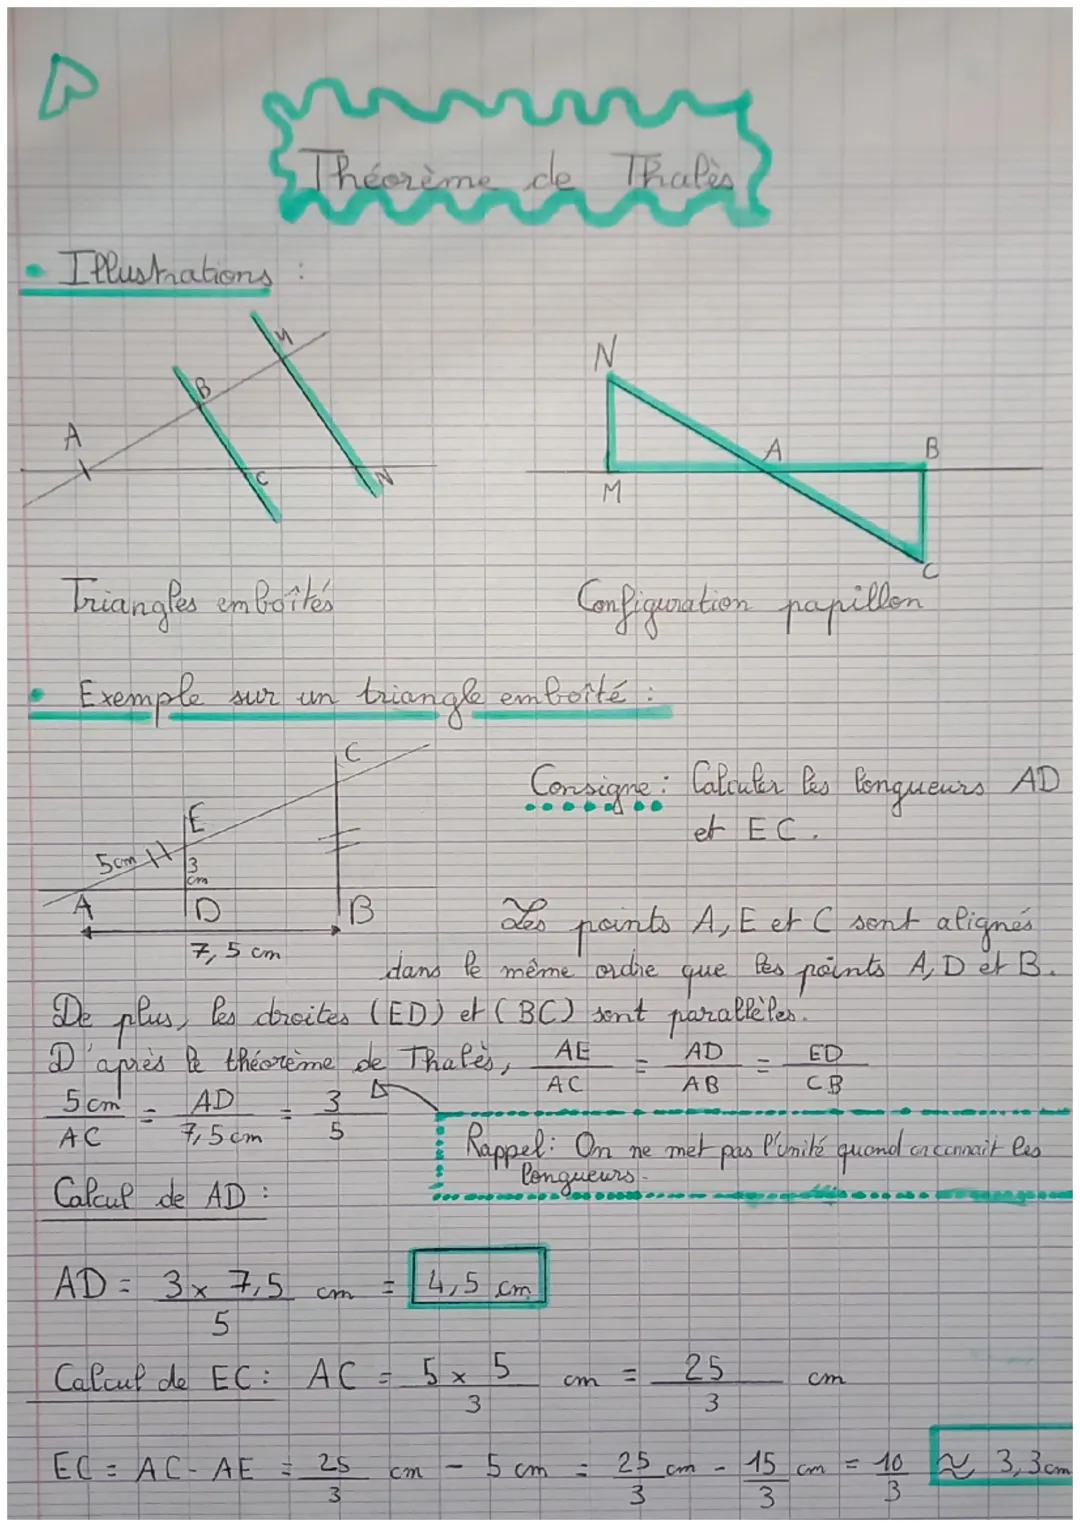 Théorème de Thalès
• Illustrations :
A B C M N
N M A B C
Triangles emboîtés
Configuration papillon
• Exemple sur un triangle emboîté :
C
E
5cm
3 cm
A D B
7,5 cm
Consigne : Calculer les longueurs AD
et EC.
Les points A, E et C sont alignés
dans le même ordre que les points A, D et B.
De plus, les droites (ED) et (BC) sont parallèles.
D'après le théorème de Thalès, AE/AC = AD/AB = ED/CB
5cm/AC = AD/7,5cm = 3/5
Rappel : On ne met pas l'unité quand on connait les
longueurs.
Calcul de AD :
AD = 3 x 7,5/5 cm = 4,5 cm
Calcul de EC : AC = 5 x 5/3 cm = 25/3 cm
EC = AC - AE = 25/3 cm - 5 cm = 25/3 cm - 15/3 cm = 10/3 ≈ 3,3cm